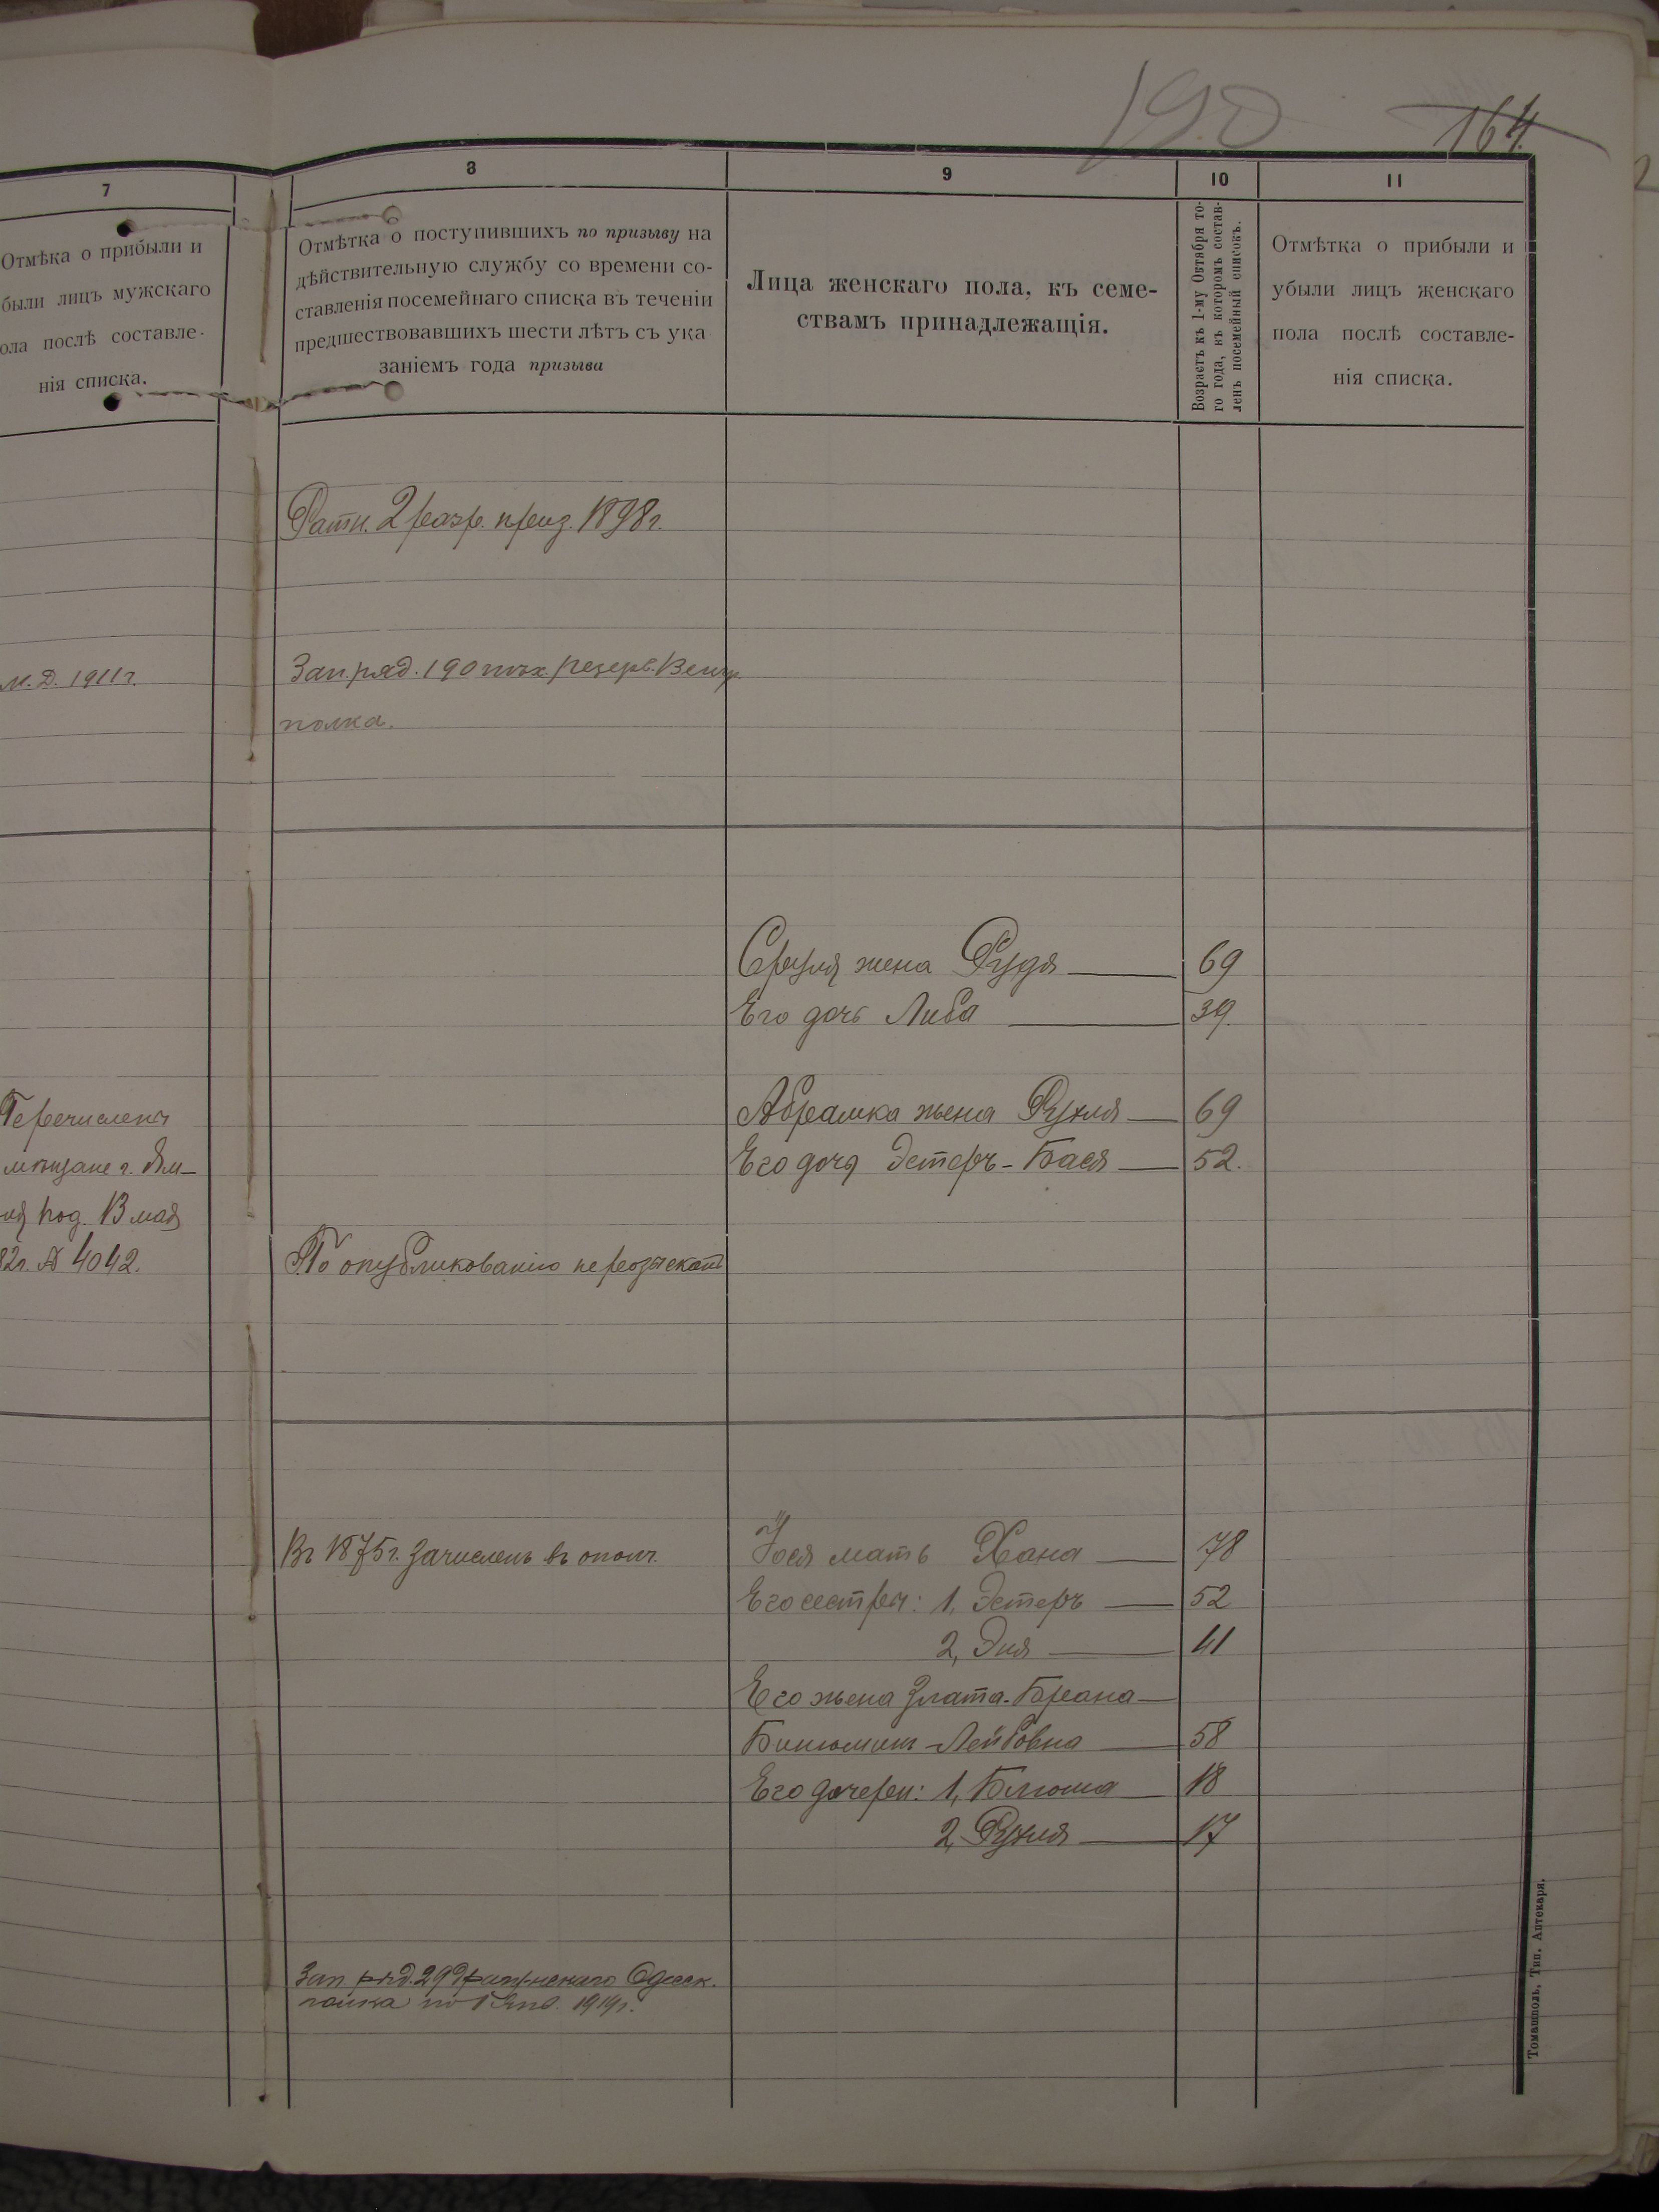 190
164.
7
8
9
10
11
Отмѣка о прибыли и
были лицъ мужскаго
ола послѣ составле-
нія списка.
Отмѣтка о поступившихъ по призыву на
дѣйствительную службу со времени со-
ставленія посемейнаго списка въ теченіи
предшествовавшихъ шести лѣтъ съ ука
заніемъ года призыва
Лица женскаго пола, къ семе-
ствамъ принадлежащія.
Возрастъ къ 1-му Октября то-
го года, къ которомъ состав-
ленъ посемейный списокъ.
Отмѣтка о прибыли и
убыли лицъ женскаго
пола послѣ составле-
нія списка.
Ратн. 2 разр. приз. 1898 г.
м. Д. 1911 г.
Зап. ряд. 190 пѣх. резерв. Венгр.
полка.
Сруля жена Рудя 69
Его дочь Либа 39
Перечисленъ
Абрамка жена Рухля 69
мѣщане г. Ям-
Его дочь Эстеръ-Бася 52.
13 мая
82 г. № 4042.
По опубликованію не розысканъ
Въ 1875 г. зачисленъ въ ополч.
Іося мать Хана 78
Его сестры: 1, Эстеръ 52
2, Эня 41
Его жена Злата-Брана
Биньюминъ-Лейбовна 58
Его дочери: 1, Блюма 18
2, Рухля 17
Зап. ряд. 29 Одесск.
полка по 1 Янв. 1919 г.
Томашполь, Тип. Аптекаря.